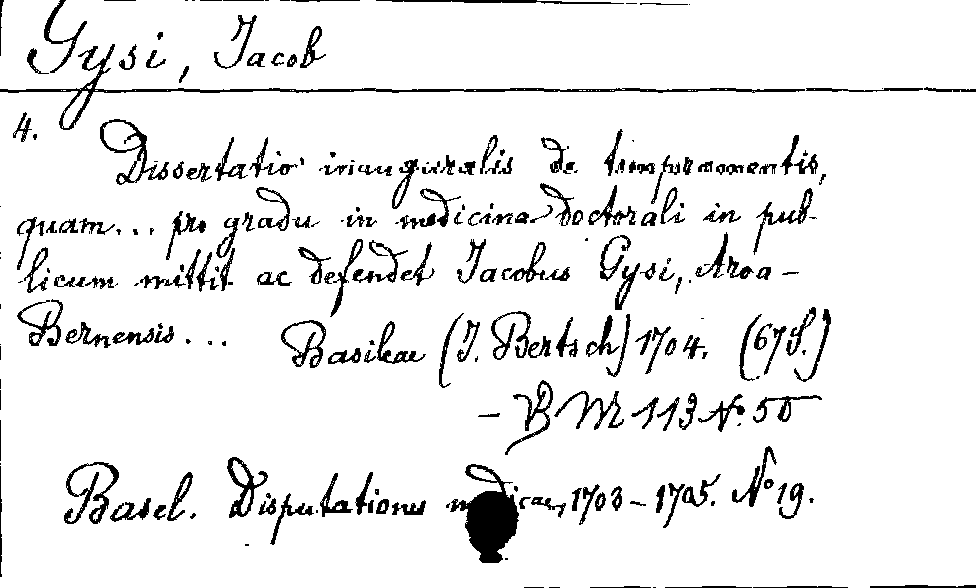 Gysi, Jacob
4.
Dissertatio inauguralis de temperamentis,
quam... pro gradu in medicina doctorali in pub-
licum mittit ac defendet Jacobus Gysi, Aroa-
Bernensis...
Basileae (J. Bertsch) 1704. (67 S.)
- VB Mr 113 No. 50
Basel. Disputationes medicae, 1703-1705. No 19.